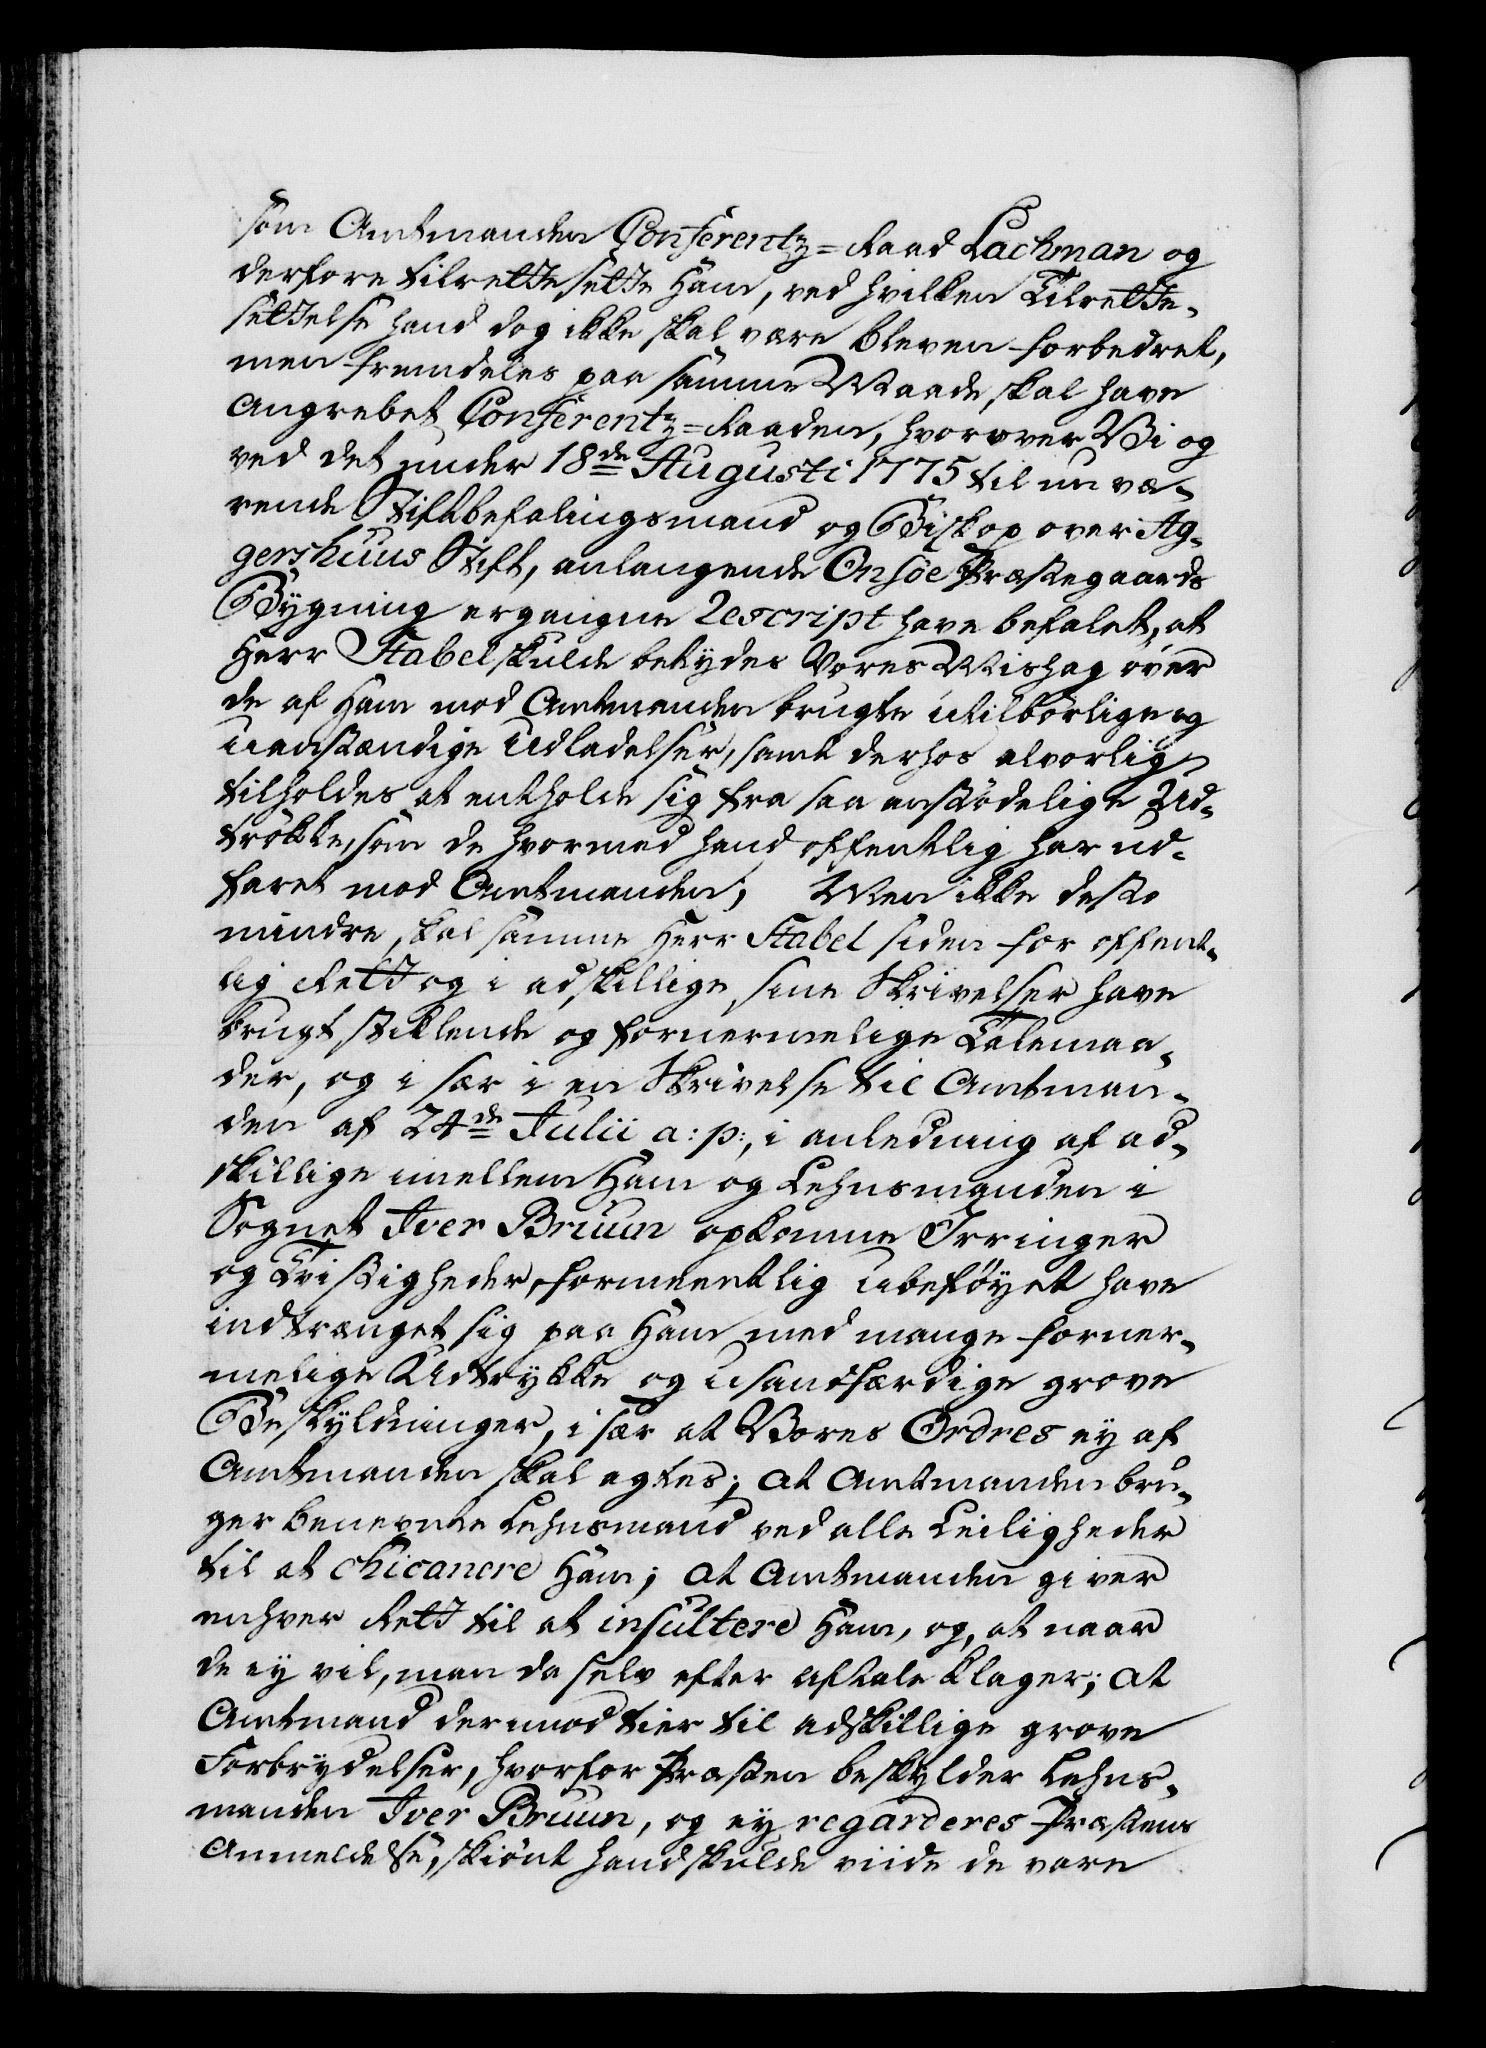 som Amtmanden Conferentz=Raad Lachman og
derfore tilrettesætte Ham, ved hvilken Tilrette-
settelse hand dog ikke skal være bleven forbedret,
men fremdeles paa samme Maade skal have
Angrebet Conferentz=Raaden, hvorover Vi og
ved det under 18de Augusti 1775 til nu væ-
rende Stiftbefalingsmand og Biskop over Ag-
gershuus Stift, anlangende Onsøe Præstegaards
Bygning ergangne Rescript have befalet, at
Herr Stabel skulde betydes Vores Mishag over
de af Ham mod Amtmanden brugte utilbørlige og
uanstændige Udladelser, samt derhos alvorlig
tilholdes at entholde sig fra saa anstødelige Ud-
trökke, som de hvormed hand offentlig har ud-
faret mod Amtmanden; Men ikke desto
mindre skal samme Herr Stabel siden for offent-
lig Rett og i adskillige sine Skrivelser have
brugt stiklende og fornermelige Talemaa-
der, og i sær i en Skrivelse til Amtman-
den af 24de Julii a: p:, i anledning af ad-
skillige imellem Ham og Lehnsmanden i
Sognet Iver Bruun opkomne Irringer
og Tvistigheder, formeentlig ubeføyet have
indtrænget sig paa Ham med mange forner-
melige Udtrykke og usandfærdige grove
Beskyldninger, i sær at Vores Ordres ey af
Amtmanden skal agtes; at Amtmanden bru-
ger benevnte Lehnsmand ved alle Leiligheder
til at chicanere Ham; at Amtmanden giver
enhver Rett til at insultere Ham, og, at naar
de ey vil, man da selv efter Aftale klager; at
Amtmand derimod tier til adskillige grove
Forbrydelser, hvorfor Præsten beskylder Lehns-
manden Iver Bruun, og ey regarderes Præstens
Anmeldelse, skiönt hand skulde viide de vare